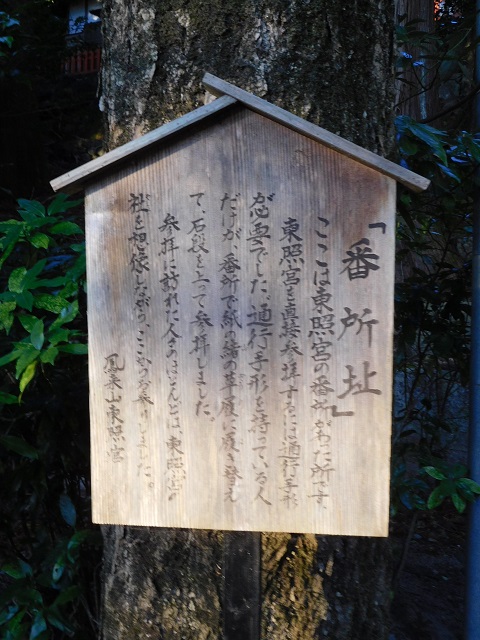 「番所址」
ここは東照宮の番所があった所です。
東照宮を直接参拝するには通行手形
が必要でした。通行手形を持っている人
だけが、番所で紙の緒の草履に履き替え
て、石段を上って参拝しました。
参拝に訪れた人々のほとんどは、東照宮の
社を想像しながら、ここからお参りしました。
鳳来山東照宮